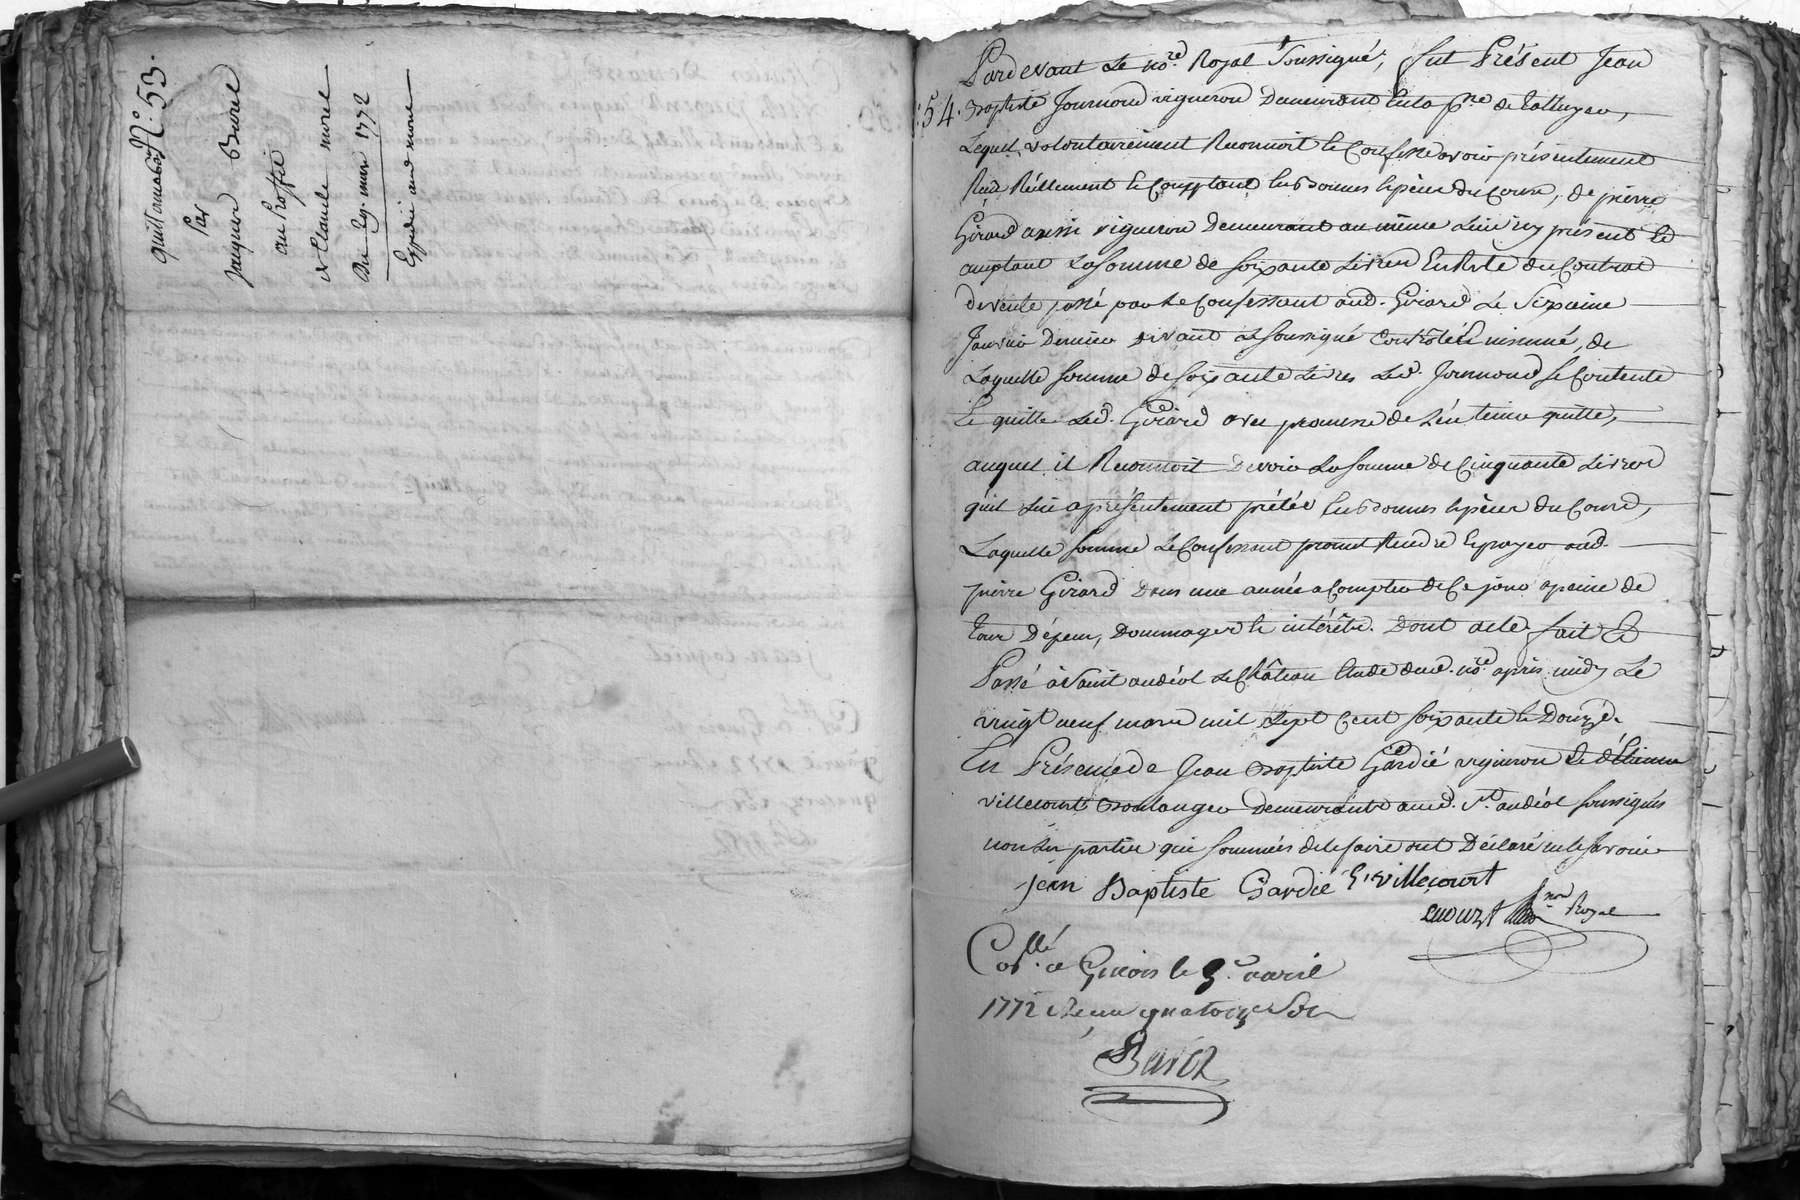 N.° 53.
quittance
Par
Jacques Burel
au Proffit
de Claude morel
Du 29. mars 1772
Expédié aud morel
Pardevant Le no.re Royal Soussigné, fut Présent Jean
54. Baptiste Journoud vigneron Demeurant en la p.sse de Talluyer,
Lequel, volontairement Reconnoit et Confesse avoir présentement
Reçu Réellement et Comptant En bonnes Espèces du Cours, de pierre
Girard aussi vigneron Demeurant au même Lieu icy présent Et
acceptant La Somme de Soixante Livres En Reste du Contrat
de vente passé par Le Confessant aud. Girard Le Six
Janvier Dernier devant Le Soussigné Controllé & insinué, de
Laquelle Somme de Soixante Livres Led. Journoud Se Contente
Et quitte Led. Girard avec promesse de L'en tenir quitte,
auquel il Reconnoit Devoir La Somme de Cinquante Livres
qu'il Lui a présentement prêtée En bonnes Espèces du Cours,
Laquelle Somme Le Confessant promet Rendre Et payer aud.
pierre Girard Dans une année a Compter de Ce jour a peine de
tous Dépens, Dommages Et intérêts. Dont acte fait Et
Passé à Saint andéol Le Château Etude dud. no.re après midy Le
vingt neuf mars mil Sept Cent Soixante Et Douze.
En Présence de Jean Baptiste Gardié vigneron Et d'Etienne
villecourt Boulanger Demeurants aud. St. andéol Soussignés
non Les parties qui Sommées de Le faire ont Déclaré ne le Savoir
Jean Baptiste Gardié E. villecourt
no.re Royal
Co.llé a Givors le 9.e avril
1772 Reçu quatorze Sols